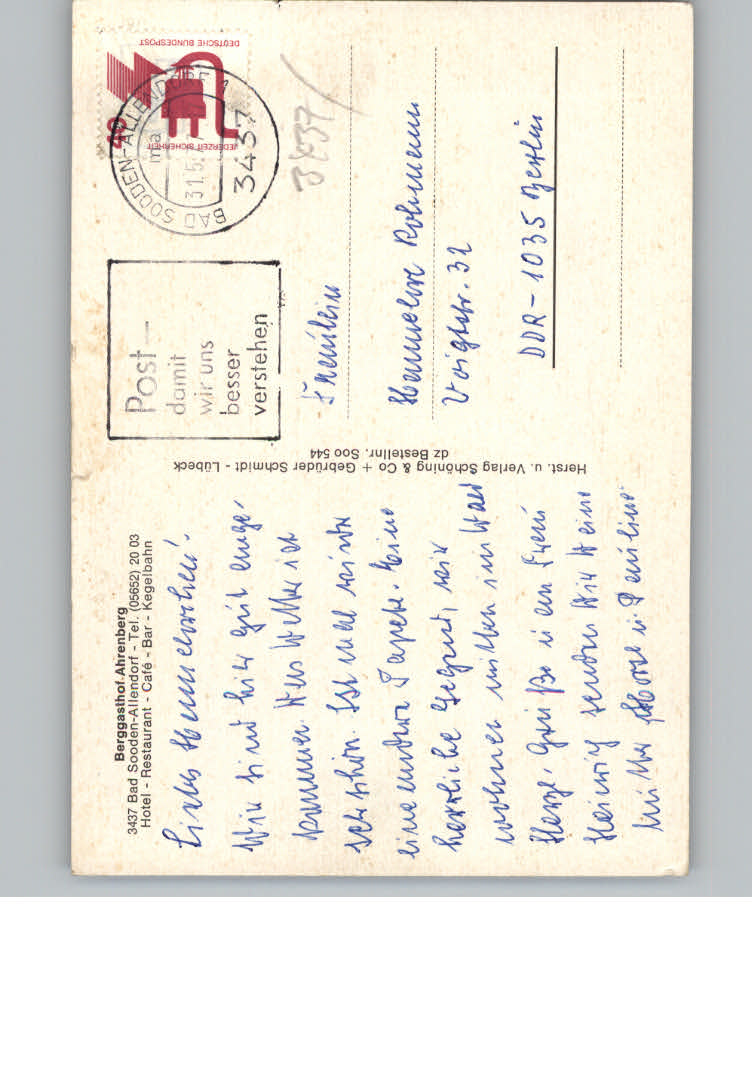 Berggasthof Ahrenberg
3437 Bad Sooden-Allendorf - Tel. (05652) 20 03
Hotel - Restaurant - Café - Bar - Kegelbahn
Liebes Hannelorchen!
Wir sind hier gut ange-
kommen. Das Wetter ist
sehr schön. Ist mal wieder
eine andere Tapete. Eine
herrliche Gegend, wir
wohnen mitten im Wald
Herzl. Grüße u an Frau
Heinrich senden Dir Deine
Mutter u Pauline
Herst. u. Verlag Schöning & Co + Gebrüder Schmidt - Lübeck
dz Bestellnr. Soo 544
Post—
damit
wir uns
besser
verstehen
BAD SOODEN-ALLENDORF 1
ma
31.5.
3437
40
DEUTSCHE BUNDESPOST
JEDERZEIT SICHERHEIT
3437/
Fräulein
Hannelore
Voigtstr. 32
DDR-1035 Berlin